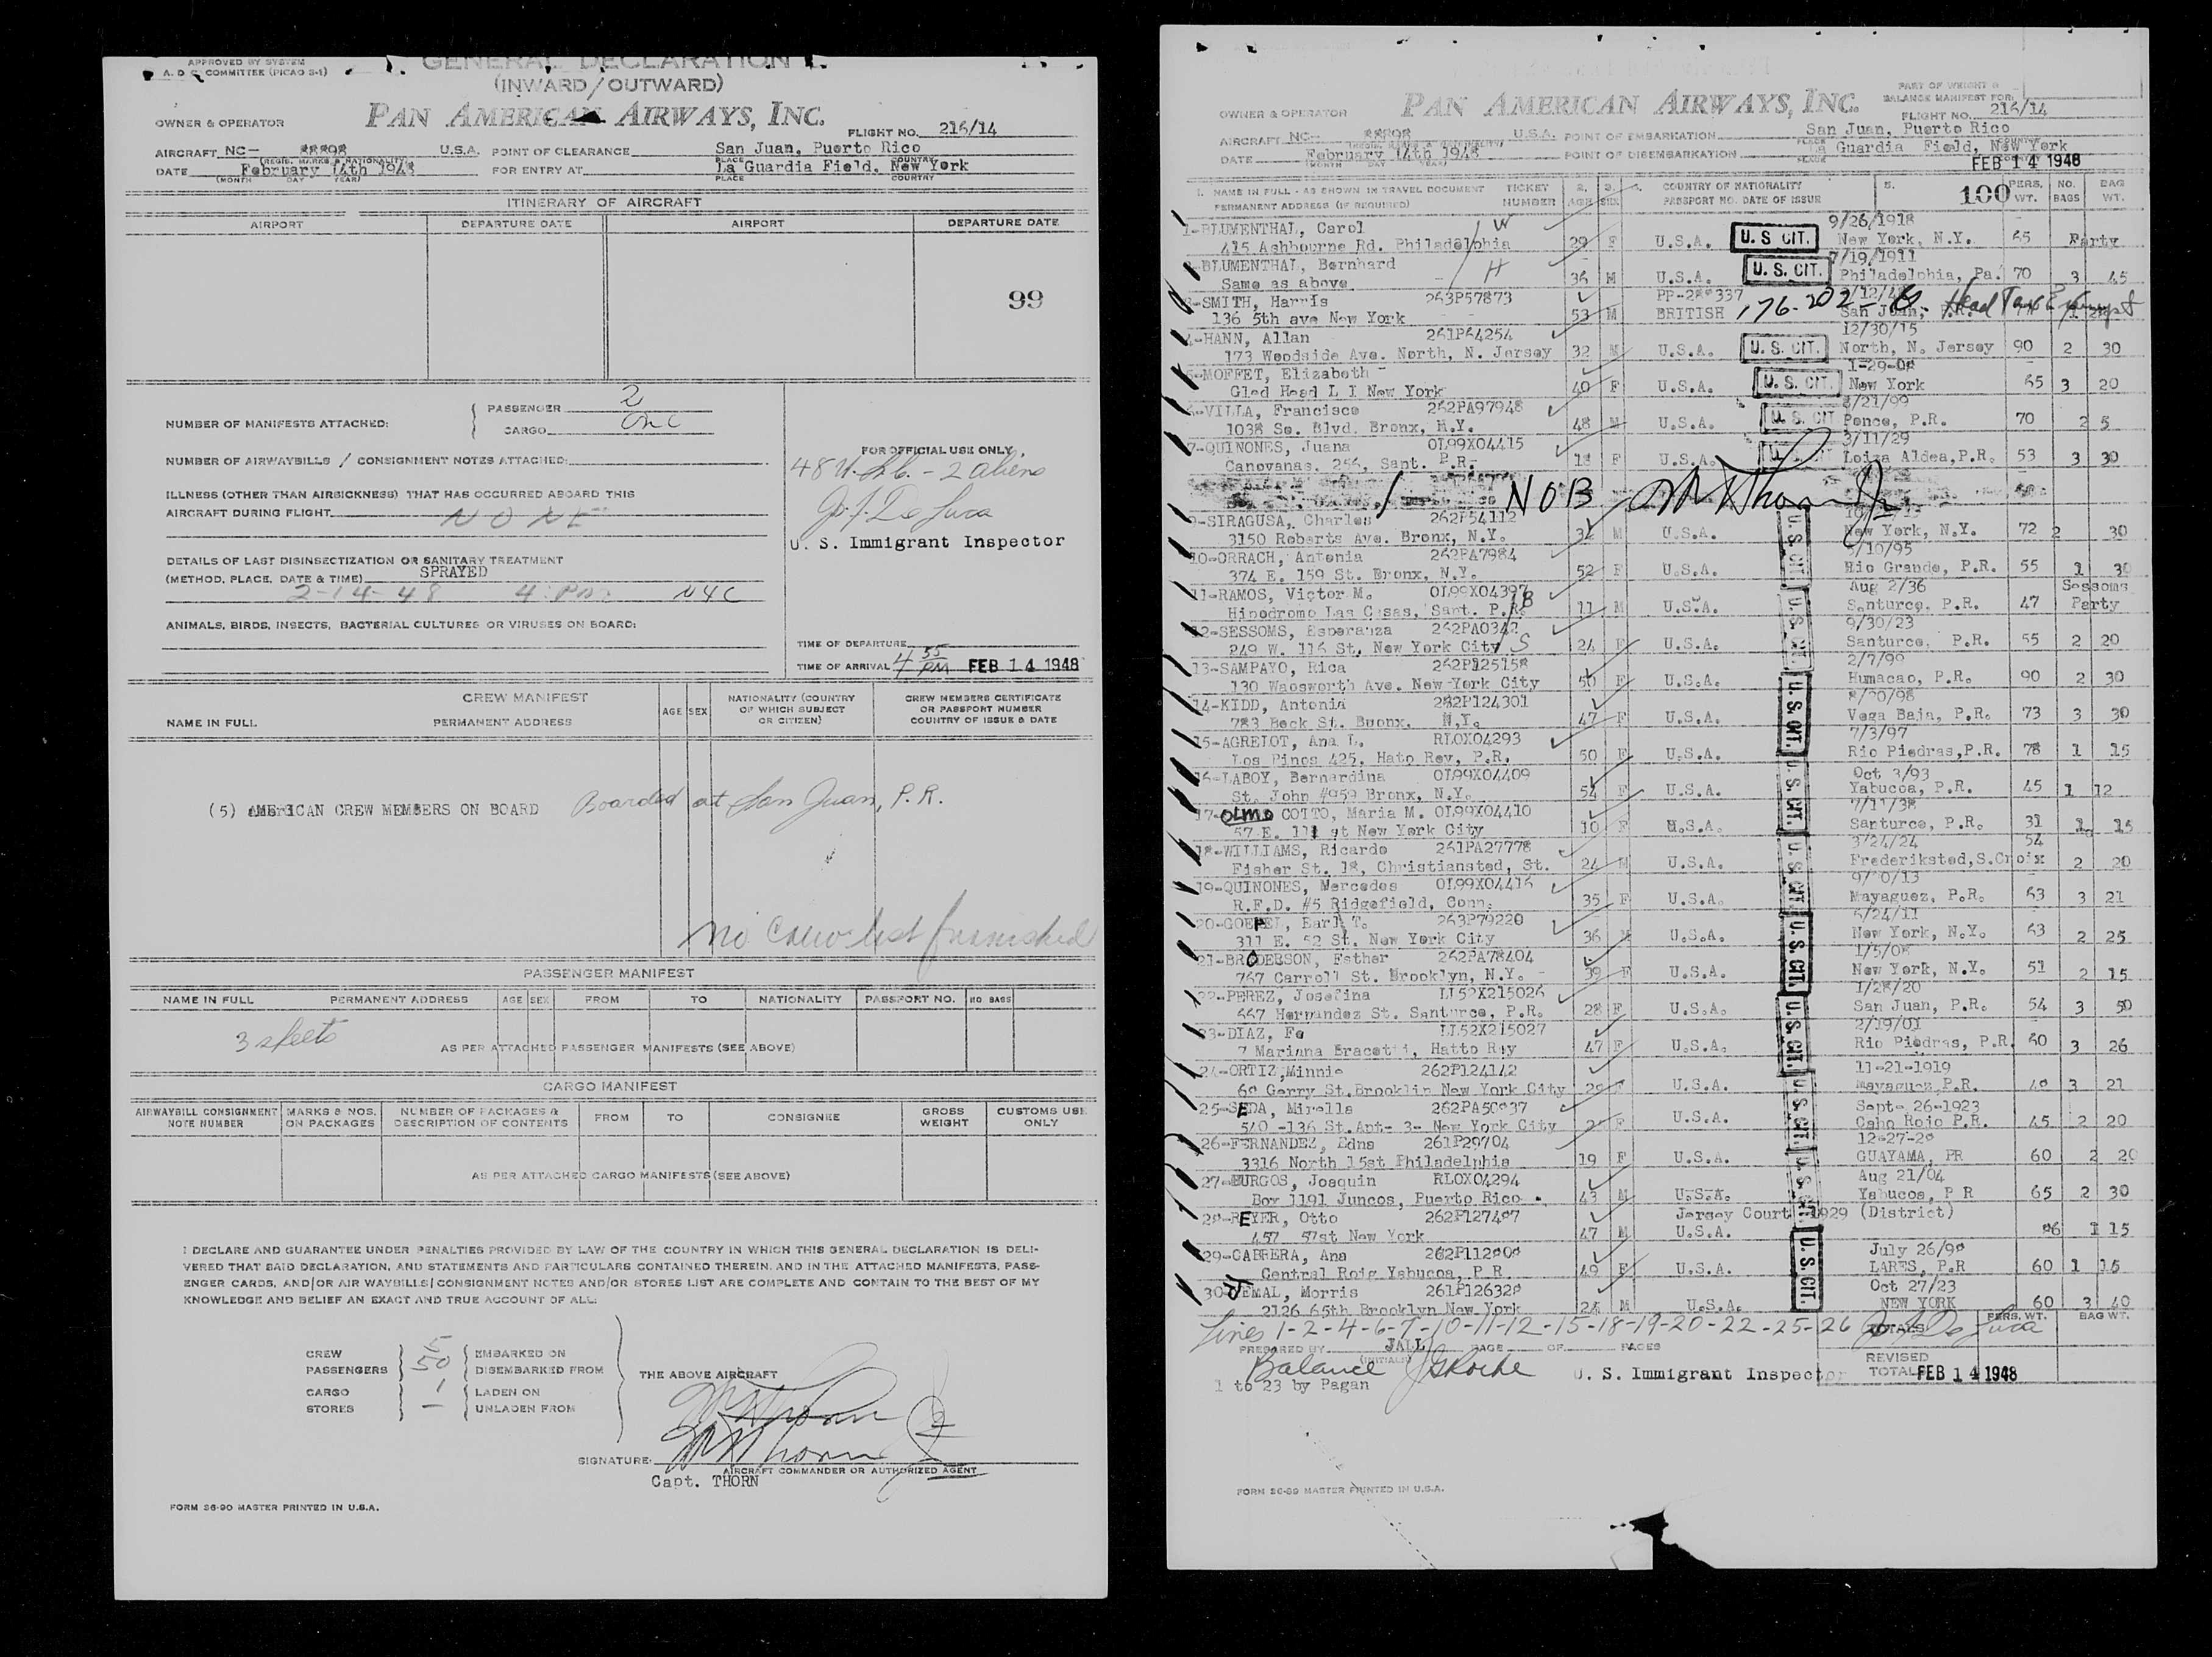 APPROVED BY SYSTEM
A. D C COMMITTEE (PICAO S-1)
GENERAL DECLARATION
(INWARD/OUTWARD)
PAN AMERICAN AIRWAYS, INC.
OWNER & OPERATOR
FLIGHT NO. 216/14
AIRCRAFT NC- 88898 U.S.A. POINT OF CLEARANCE San Juan, Puerto Rico
(REGIS. MARKS & NATIONALITY) PLACE COUNTRY
DATE February 14th 1948 FOR ENTRY AT La Guardia Field, New York
(MONTH DAY YEAR) PLACE COUNTRY
ITINERARY OF AIRCRAFT
AIRPORT DEPARTURE DATE AIRPORT DEPARTURE DATE
99
NUMBER OF MANIFESTS ATTACHED: PASSENGER 2
CARGO One
NUMBER OF AIRWAYBILLS / CONSIGNMENT NOTES ATTACHED:
ILLNESS (OTHER THAN AIRSICKNESS) THAT HAS OCCURRED ABOARD THIS
AIRCRAFT DURING FLIGHT NONE
DETAILS OF LAST DISINSECTIZATION OR SANITARY TREATMENT
(METHOD, PLACE, DATE & TIME) SPRAYED
2-14-48 4 PM NYC
ANIMALS, BIRDS, INSECTS, BACTERIAL CULTURES OR VIRUSES ON BOARD:
FOR OFFICIAL USE ONLY
48 U.S.C. - 2 aliens
J. J. De Luca
U. S. Immigrant Inspector
TIME OF DEPARTURE
TIME OF ARRIVAL 4 55 PM FEB 14 1948
CREW MANIFEST
NAME IN FULL PERMANENT ADDRESS AGE SEX NATIONALITY (COUNTRY OF WHICH SUBJECT OR CITIZEN) CREW MEMBERS CERTIFICATE OR PASSPORT NUMBER COUNTRY OF ISSUE & DATE
(5) AMERICAN CREW MEMBERS ON BOARD Boarded at San Juan, P.R.
No Crew list furnished
PASSENGER MANIFEST
NAME IN FULL PERMANENT ADDRESS AGE SEX FROM TO NATIONALITY PASSPORT NO. NO BAGS
3 sheets
AS PER ATTACHED PASSENGER MANIFESTS (SEE ABOVE)
CARGO MANIFEST
AIRWAYBILL CONSIGNMENT NOTE NUMBER MARKS & NOS. ON PACKAGES NUMBER OF PACKAGES & DESCRIPTION OF CONTENTS FROM TO CONSIGNEE GROSS WEIGHT CUSTOMS USE ONLY
AS PER ATTACHED CARGO MANIFESTS (SEE ABOVE)
I DECLARE AND GUARANTEE UNDER PENALTIES PROVIDED BY LAW OF THE COUNTRY IN WHICH THIS GENERAL DECLARATION IS DELI-
VERED THAT SAID DECLARATION, AND STATEMENTS AND PARTICULARS CONTAINED THEREIN, AND IN THE ATTACHED MANIFESTS, PASS-
ENGER CARDS, AND/OR AIR WAYBILLS/CONSIGNMENT NOTES AND/OR STORES LIST ARE COMPLETE AND CONTAIN TO THE BEST OF MY
KNOWLEDGE AND BELIEF AN EXACT AND TRUE ACCOUNT OF ALL:
CREW 5 EMBARKED ON
PASSENGERS 50 DISEMBARKED FROM THE ABOVE AIRCRAFT
CARGO 1 LADEN ON
STORES — UNLADEN FROM
SIGNATURE:
AIRCRAFT COMMANDER OR AUTHORIZED AGENT
Capt. THORN
FORM 86-90 MASTER PRINTED IN U.S.A.
PART OF WEIGHT &
BALANCE MANIFEST FOR:
OWNER & OPERATOR PAN AMERICAN AIRWAYS, INC. FLIGHT NO. 216/14
AIRCRAFT NC- 88898 U.S.A. POINT OF EMBARKATION San Juan, Puerto Rico
DATE February 14th 1948 POINT OF DISEMBARKATION La Guardia Field, New York
(MONTH DAY YEAR) FEB 14 1948
1. NAME IN FULL - AS SHOWN IN TRAVEL DOCUMENT TICKET NUMBER 2. AGE 3. SEX 4. COUNTRY OF NATIONALITY 5. 100 PERS. WT. NO. BAGS BAG WT.
PERMANENT ADDRESS (IF REQUIRED) PASSPORT NO. DATE OF ISSUE
1-BLUMENTHAL, Carol W 9/26/1918
415 Ashbourne Rd. Philadelphia 29 F U.S.A. U.S CIT. New York, N.Y. 65 Party
2-BLUMENTHAL, Bernhard H 7/19/1911
Same as above 36 M U.S.A. U.S. CIT. Philadelphia, Pa. 70 3 45
3-SMITH, Harris 263P57873
136 5th ave New York 53 M BRITISH 176-202- San Juan, Head Tax Exempt
4-HANN, Allan 261P64254 12/30/15
173 Woodside Ave. North, N. Jersey 32 M U.S.A. U.S. CIT. North, N. Jersey 90 2 30
5-MOFFET, Elizabeth 1-29-08
Gled Head L I New York 40 F U.S.A. U.S. CIT. New York 65 3 20
6-VILLA, Francisco 262PA97948
1038 So. Blvd. Bronx, N.Y. 48 M U.S.A. U.S. CIT Ponce, P.R. 70 2 5
7-QUINONES, Juana OL99X04415 3/11/29
Canovanas, 256, Sant. P.R. 18 F U.S.A. Loiza Aldea, P.R. 53 3 30
NOB
9-SIRAGUSA, Charles 262P54112
3150 Roberts Ave. Bronx, N.Y. M U.S.A. New York, N.Y. 72 2 30
10-ORRACH, Antonia 262PA7984 5/10/95
374 E. 159 St. Bronx, N.Y. 52 F U.S.A. Rio Grande, P.R. 55 1 30
11-RAMOS, Victor M. OL99X04397 B Aug 2/36 Sessoms
Hipodromo Las Casas, Sant. P.R. 11 M U.S.A. Santurce, P.R. 47 Party
12-SESSOMS, Esperanza 262PA0342 9/30/23
249 W. 116 St. New York City S 24 F U.S.A. Santurce, P.R. 55 2 20
13-SAMPAYO, Rica 262P125158
130 Waosworth Ave. New York City 50 F U.S.A. Humacao, P.R. 90 2 30
14-KIDD, Antonia 282P124301 8/20/98
783 Beck St. Buonx, N.Y. 47 F U.S.A. Vega Baja, P.R. 73 3 30
15-AGRELOT, Ana L. RLOX04293 7/3/97
Los Pinos 425, Hato Rey, P.R. 50 F U.S.A. Rio Piedras, P.R. 78 1 15
16-LABOY, Bernardina OL99X04409 Oct 3/93
St. John #959 Bronx, N.Y. 54 F U.S.A. Yabucoa, P.R. 45 1 12
17-OLMO COTTO, Maria M. OL99X04410 7/11/38
57 E. 111 st New York City 10 F U.S.A. Santurce, P.R. 31 1 15
18-WILLIAMS, Ricardo 261PA27778 3/24/24 54
Fisher St. 18, Christiansted, St. 24 M U.S.A. Frederiksted, S.Croix 2 20
19-QUINONES, Mercedes OL99X04416
R.F.D. #5 Ridgefield, Conn. 35 F U.S.A. Mayaguez, P.R. 63 3 21
20-GOEPEL, Earl T. 263P79220 5/24/11
311 E. 52 St. New York City 36 M U.S.A. New York, N.Y. 63 2 25
21-BRODERSON, Esther 262PA78404 1/5/08
767 Carroll St. Brooklyn, N.Y. 39 F U.S.A. New York, N.Y. 51 2 15
22-PEREZ, Josefina LL52X215026 1/28/20
667 Hernandez St. Santurce, P.R. 28 F U.S.A. San Juan, P.R. 54 3 50
23-DIAZ, Fe LL52X215027 2/19/01
7 Mariana Bracetti, Hatto Rey 47 F U.S.A. Rio Piedras, P.R. 60 3 26
24-ORTIZ, Minnie 262P124142 11-21-1919
Gerry St. Brooklin New York City F U.S.A. Mayaguez P.R. 3 21
25-SEDA, Mirella 262PA50937 Sept- 26-1923
540 -136 St. Apt- 3- New York City F U.S.A. Cabo Rojo P.R. 45 2 20
26-FERNANDEZ, Edna 261P29704
3316 North 15st Philadelphia 19 F U.S.A. GUAYAMA, PR 60 2 20
27-BURGOS, Joaquin RLOX04294 Aug 21/04
Box 1191 Juncos, Puerto Rico 43 M U.S.A. Yabucoa, P R 65 2 30
28-REYER, Otto 262P127497 Jersey Court 1929 (District)
457 57st New York 47 M U.S.A. 1 15
29-CABRERA, Ana July 26/98
Central Roig Yabucoa, P R 49 F U.S.A. LARES, P.R 60 1 15
30-JEMAL, Morris Oct 27/23
2126 65th Brooklyn New York 24 M U.S.A. NEW YORK 60 3 40
U.S. CIT.
Lines 1-2-4-6-7-10-11-12-15-18-19-20-22-25-26 J. J. De Luca
TOTALS PERS. WT. BAG WT.
PREPARED BY JALL PAGE OF PAGES
(INITIALS)
Balance J G Roche U. S. Immigrant Inspector
REVISED TOTAL FEB 14 1948
1 to 23 by Pagan
FORM 86-89 MASTER PRINTED IN U.S.A.